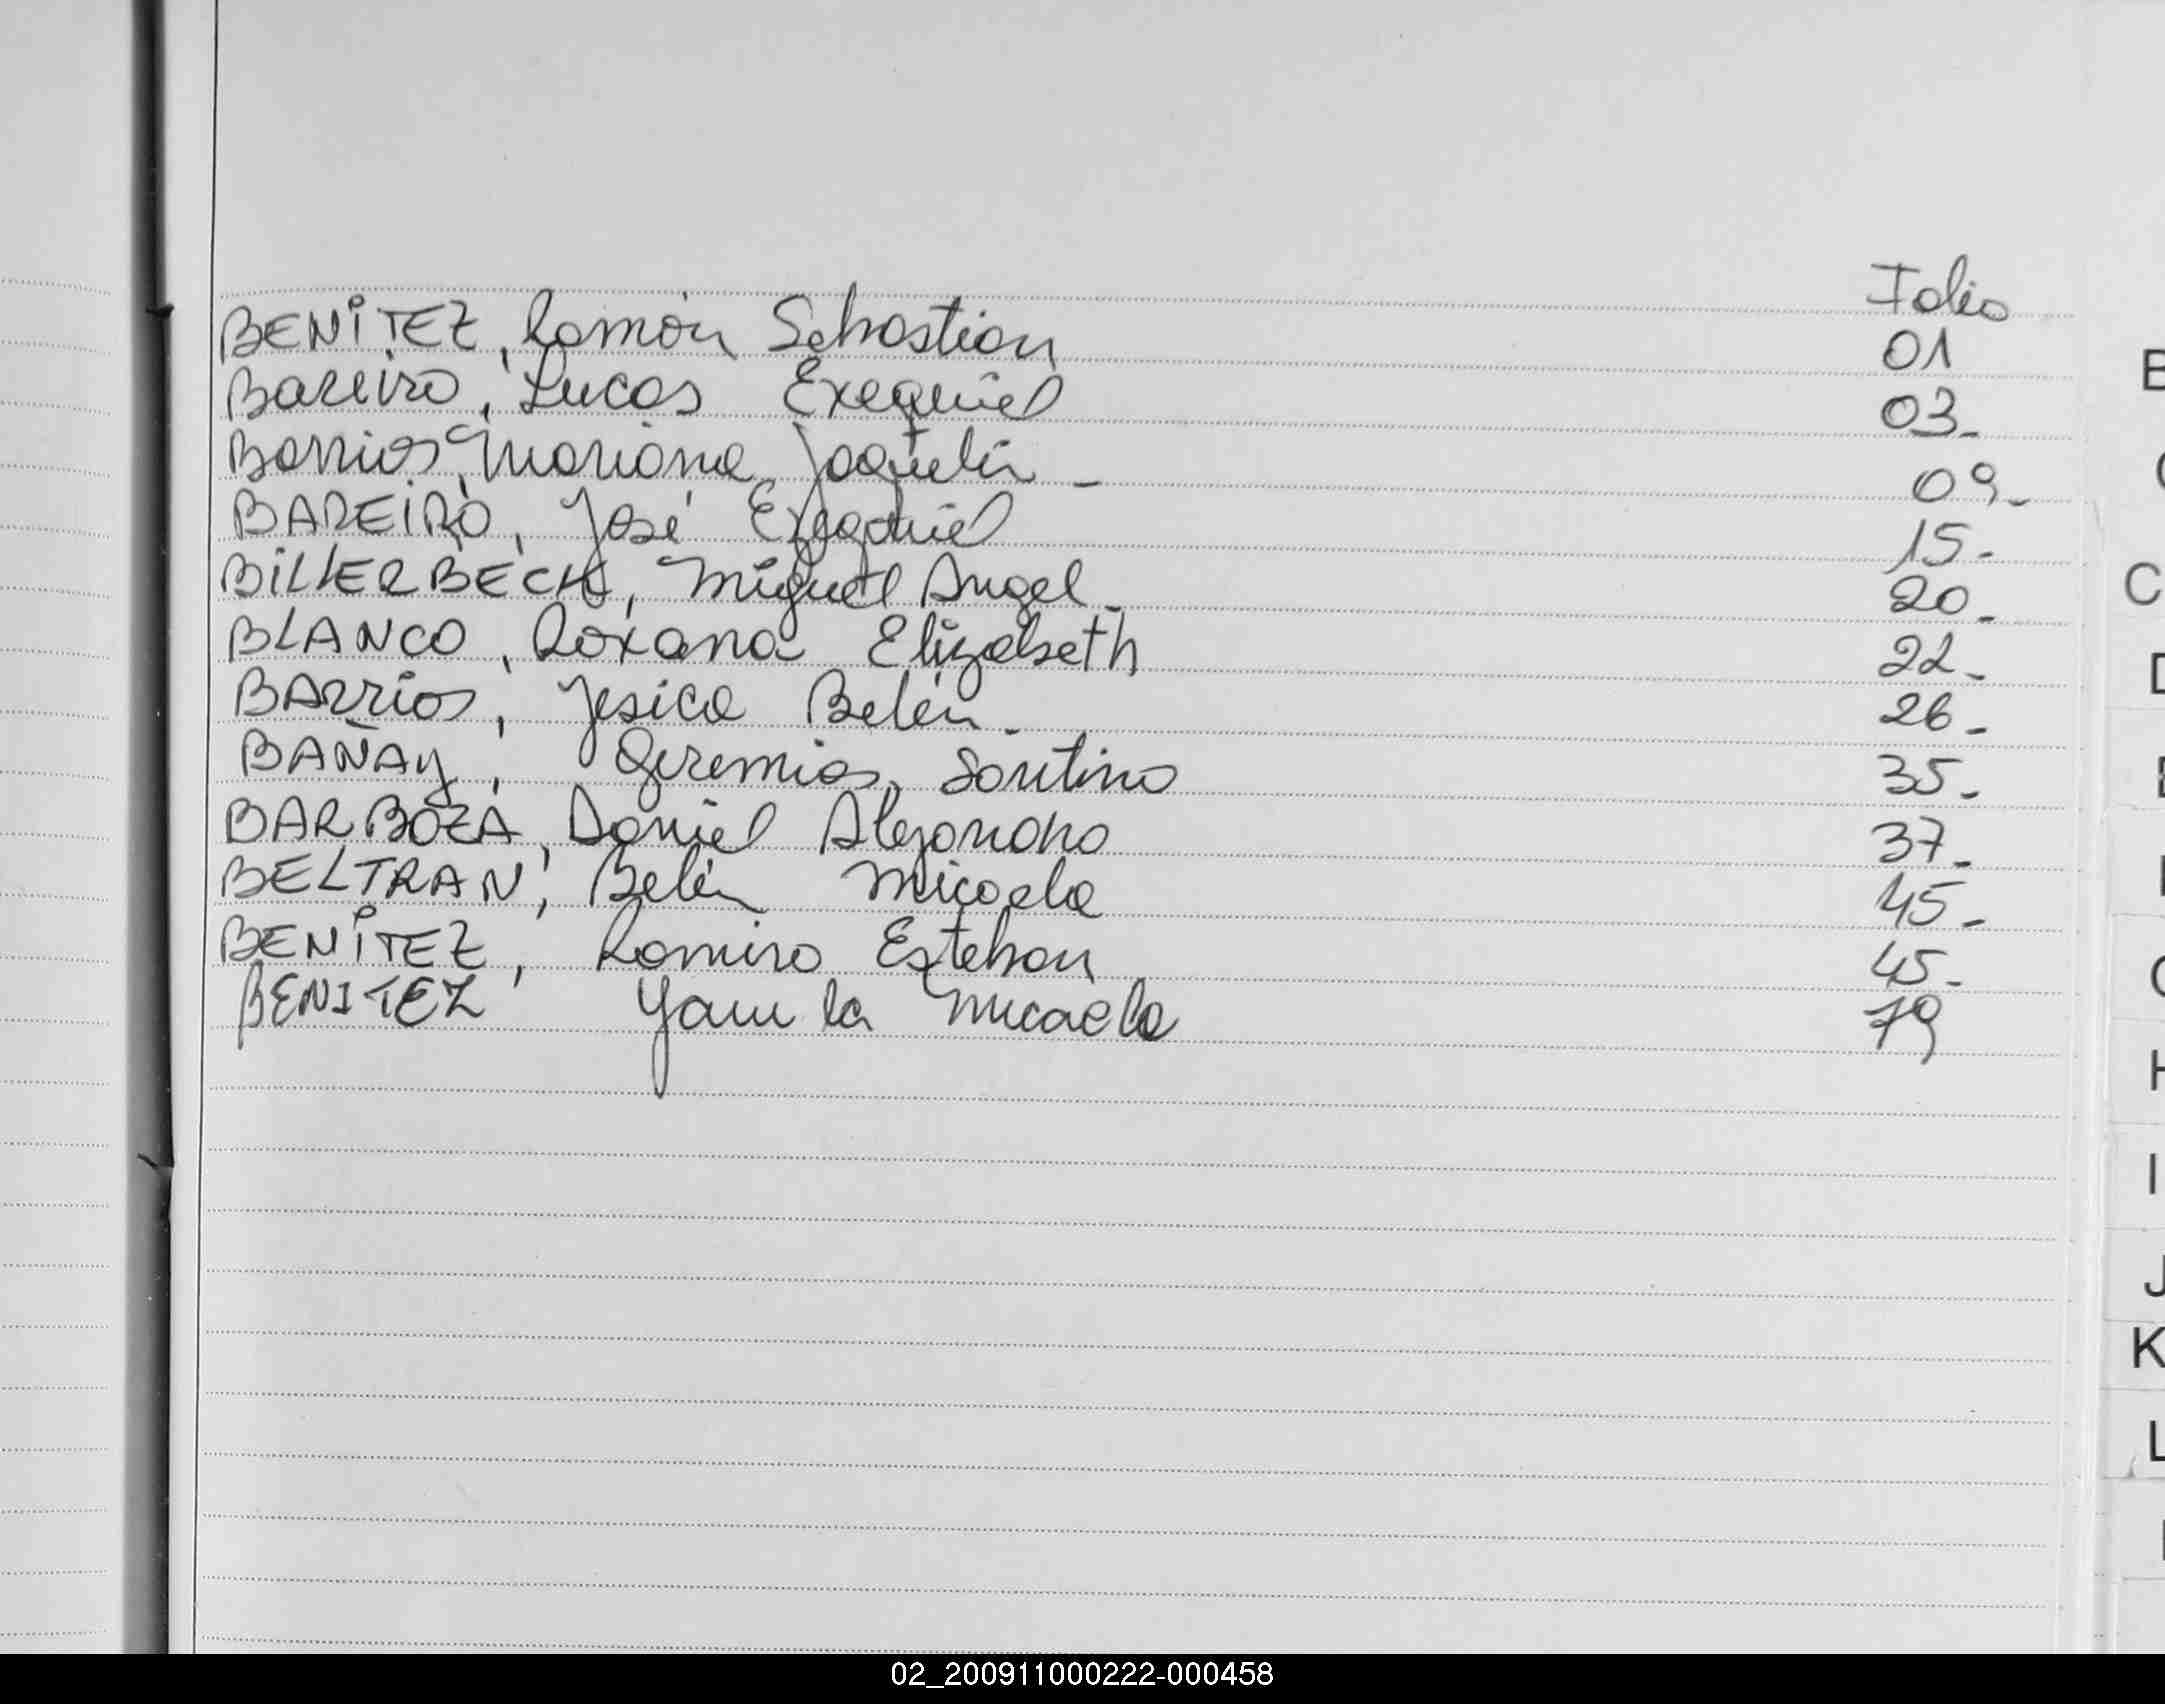 Folio
BENÍTEZ, Ramón Sebastian 01
Bareiro, Lucas Exequiel 03-
Barrios, Mariana Jaquelin - 09-
BAREIRO, José Exequiel 15-
BILLERBECK, Miguel Angel - 20-
BLANCO, Roxana Elizabeth 22-
BARRIOS, Jesica Belén - 26-
BAÑAY, Geremias Santino 35-
BARBOZA, Daniel Alejandro 37-
BELTRAN, Belén Micaela 45-
BENÍTEZ, Ramiro Esteban 45-
BENITEZ Yamila Micaela 79
B
C
D
H
I
J
K
L
02_200911000222-000458